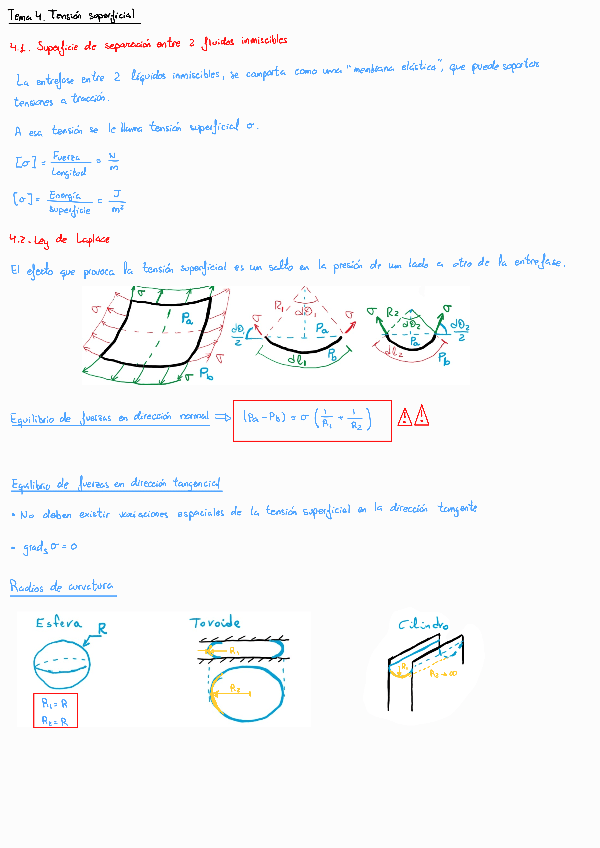 Tema 4. Tensión superficial
4.1. Superficie de separación entre 2 fluidos inmiscibles
La entrefase entre 2 líquidos inmiscibles, se comporta como una "membrana elástica", que puede soportar
tensiones a tracción.
A esa tensión se le llama tensión superficial σ.
[σ] = Fuerza / Longitud = N / m
[σ] = Energía / Superficie = J / m²
4.2. Ley de Laplace
El efecto que provoca la tensión superficial es un salto en la presión de un lado a otro de la entrefase.
σ σ Pa σ σ Pb
R₁ dθ₁ σ σ dθ₁/2 Pa Pb dl₁
σ R₂ dθ₂ σ Pa dθ₂/2 Pb dl₂
Equilibrio de fuerzas en dirección normal ⇒ (Pa - Pb) = σ (1/R₁ + 1/R₂)
Equilibrio de fuerzas en dirección tangencial
• No deben existir variaciones espaciales de la tensión superficial en la dirección tangente
- gradₛ σ = 0
Radios de curvatura
Esfera
R
R₁ = R
R₂ = R
Toroide
R₁
R₂
Cilindro
R₁
R₂→∞